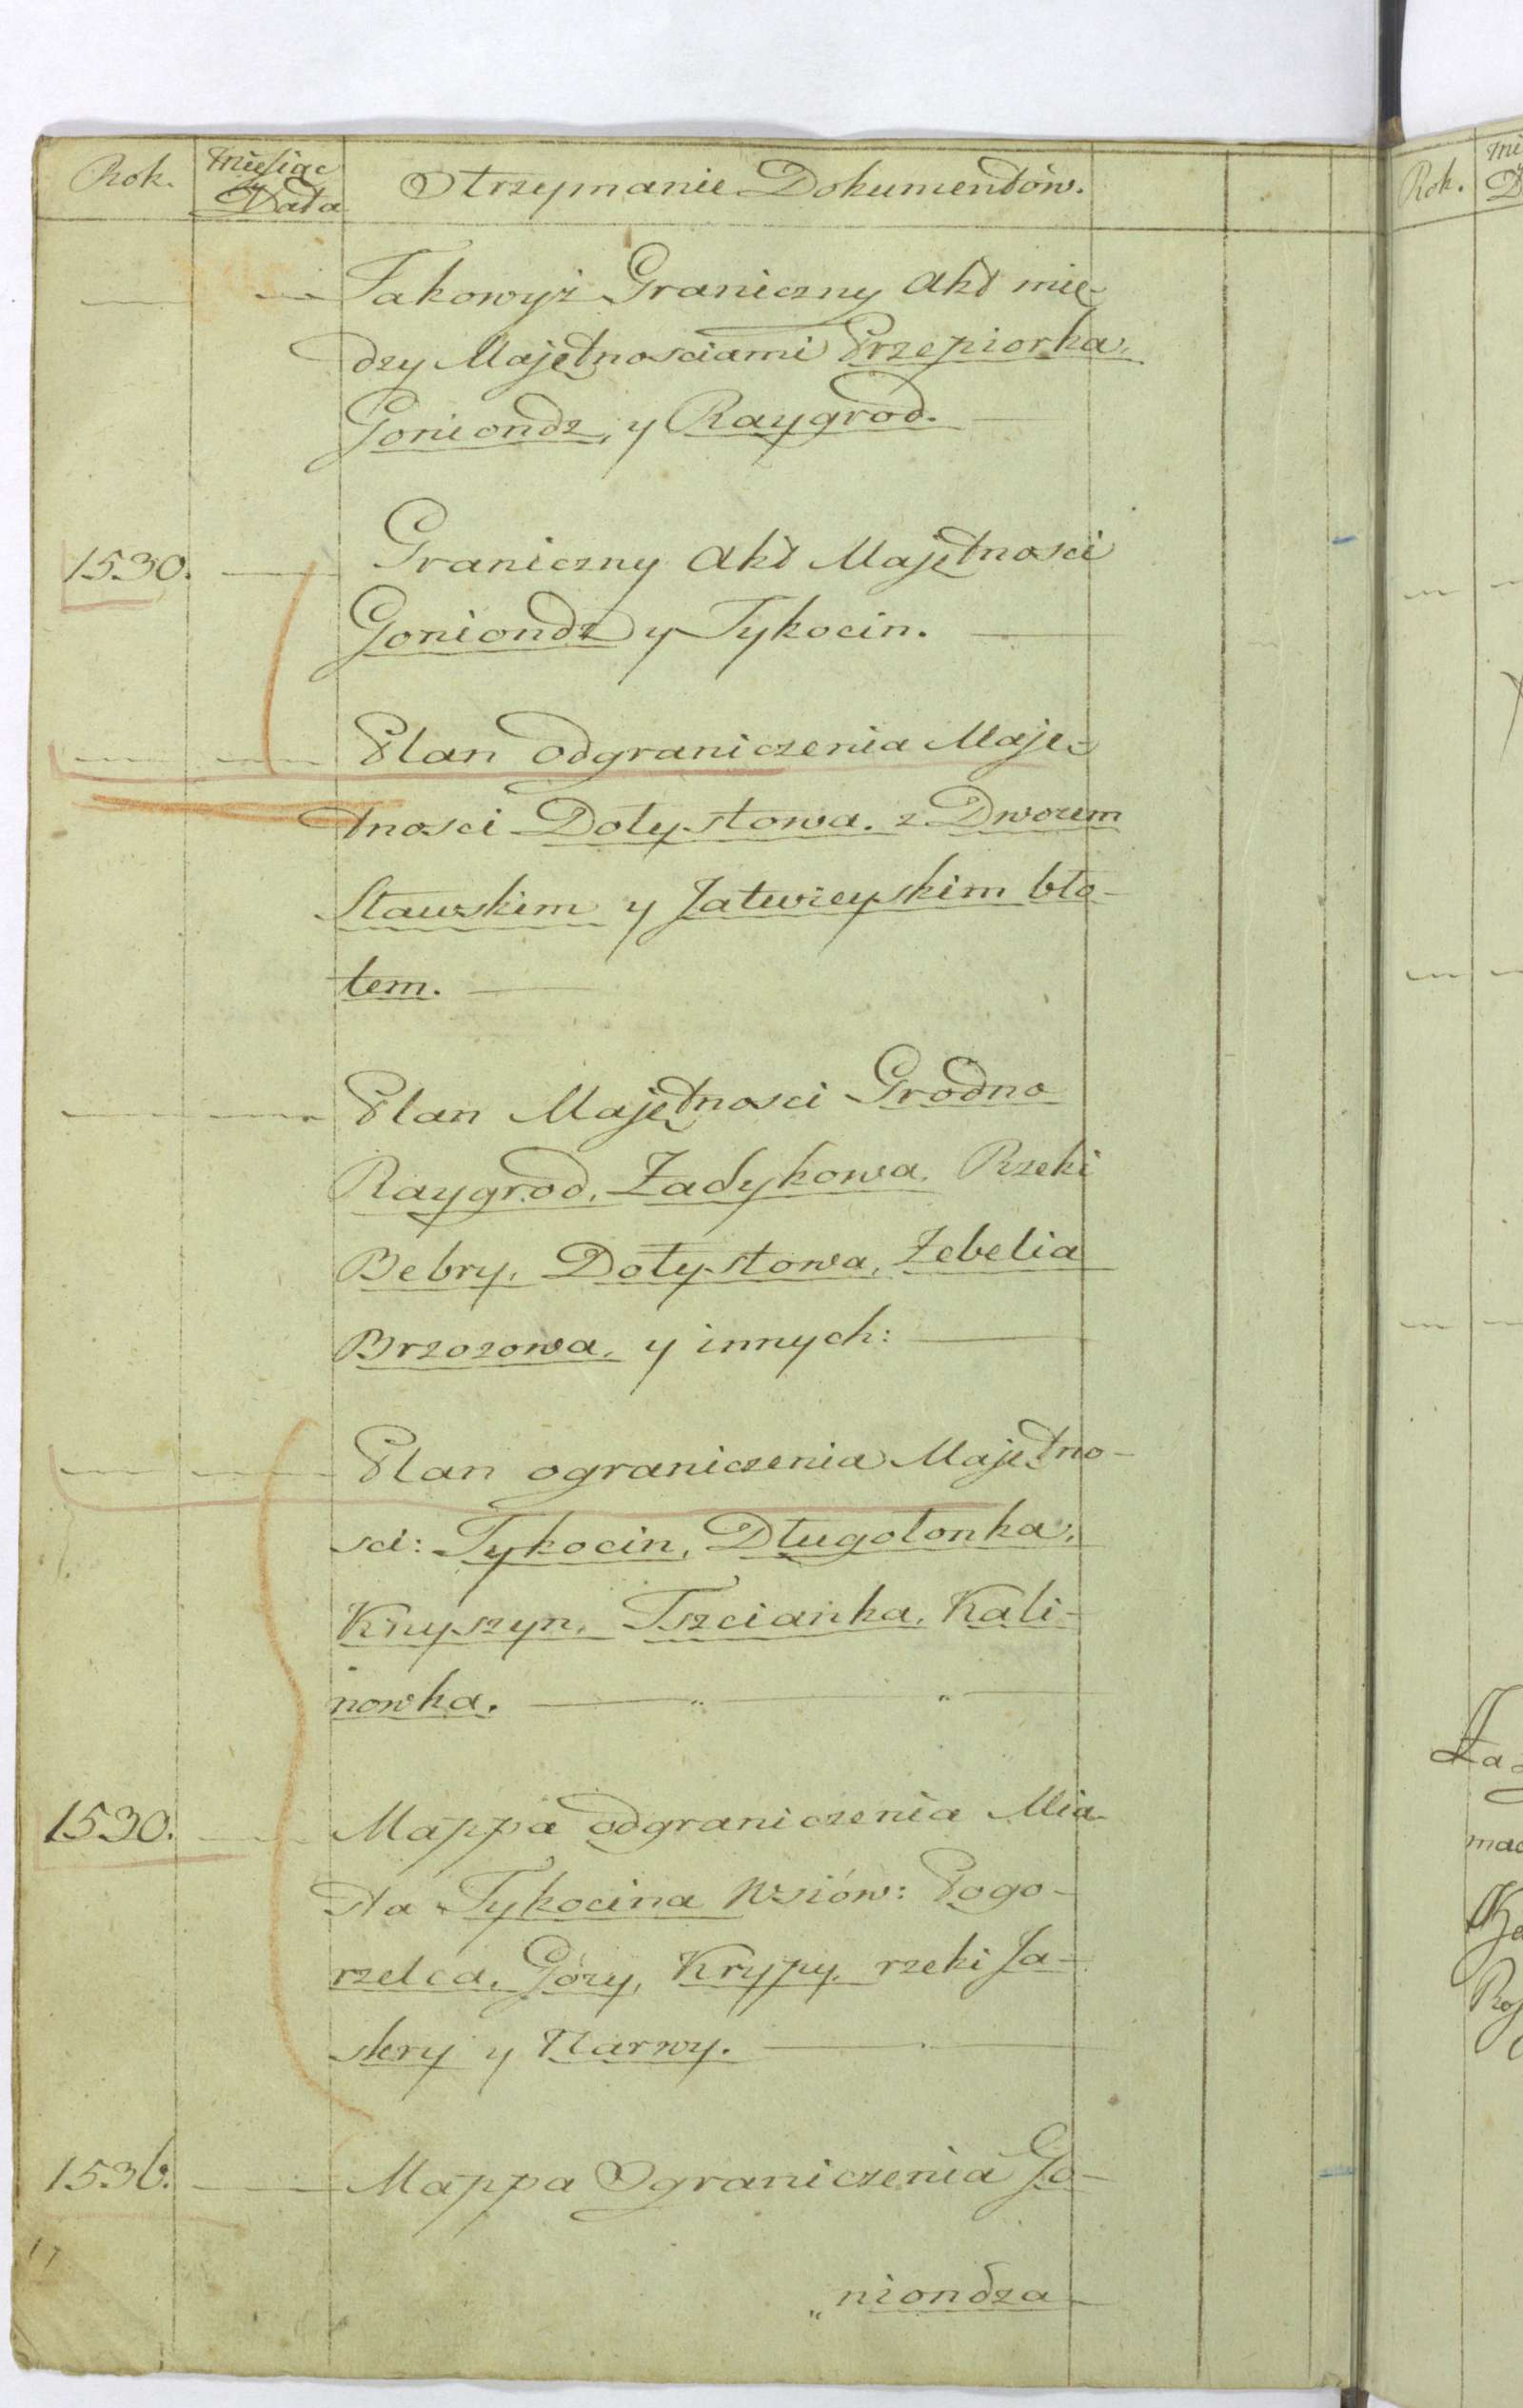 Rok. Miesiąc y Data Otrzymanie Dokumentów.
Takowyż Graniczny Akt mie-
dzy Majętnosciami Przepiorka,
Goniondz, y Raygrod.
1530. Graniczny Akt Majętnosci
Goniondz y Tykocin.
Plan odgraniczenia Maję-
tnosci Dolystowa. z Dworem
Stawskim y Jatwieyskim bło-
tem.
Plan Majętnosci Grodno
Raygrod, Zadykowa. Rzeki
Bebry, Dołystowa, Zebelia
Brzozowa, y innych:
Plan ograniczenia Majętno-
sci: Tykocin, Długołonka,
Knyszyn, Tszcianka, Kali-
nowka.
1530. Mappa odgraniczenia Mia-
sta Tykocina Wsiów: Pogo-
rzelca, Góry, Krypy, rzeki Ja-
skry y Narwy.
1536. Mappa Ograniczenia Go-
niondza
17
Rok.